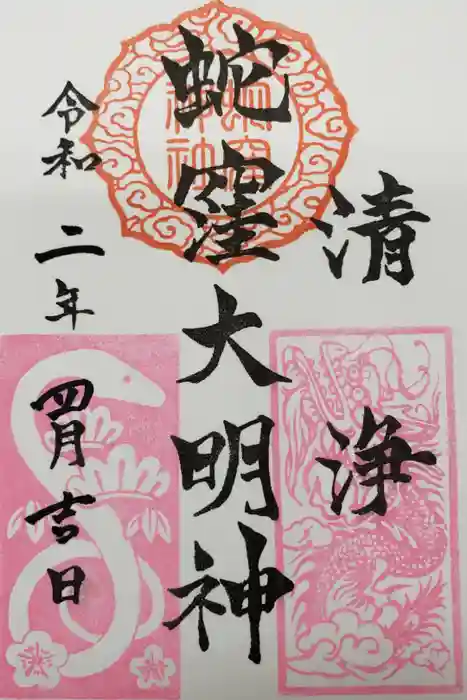 清浄
蛇窪大明神
令和二年
四月吉日